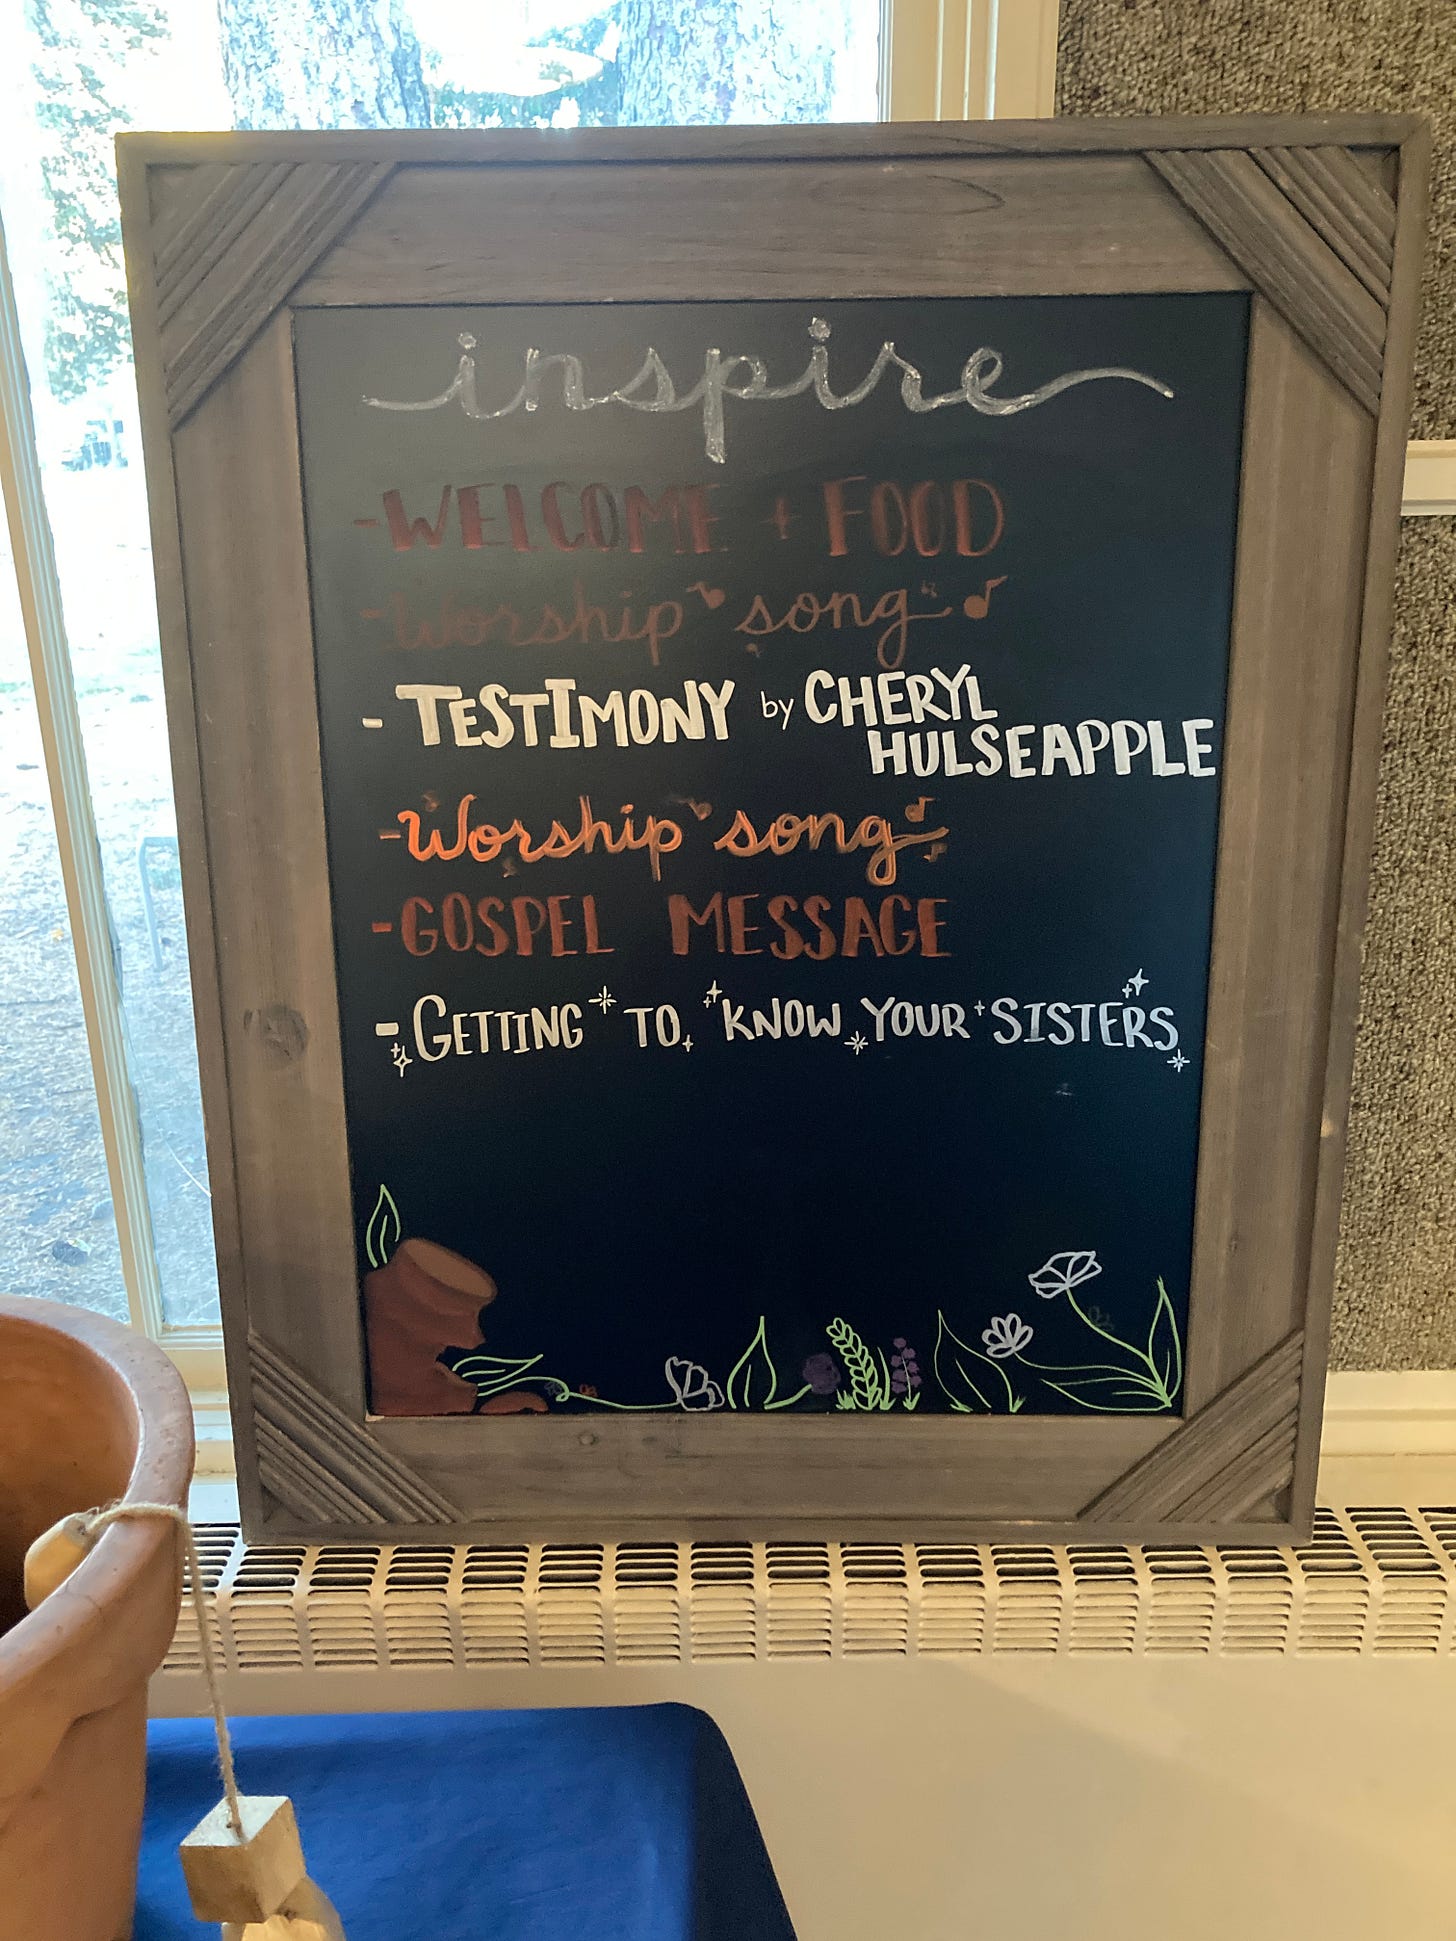 inspire
- WELCOME + FOOD
- Worship song
- TESTIMONY by CHERYL
HULSEAPPLE
- Worship song
- GOSPEL MESSAGE
- GETTING TO KNOW YOUR SISTERS